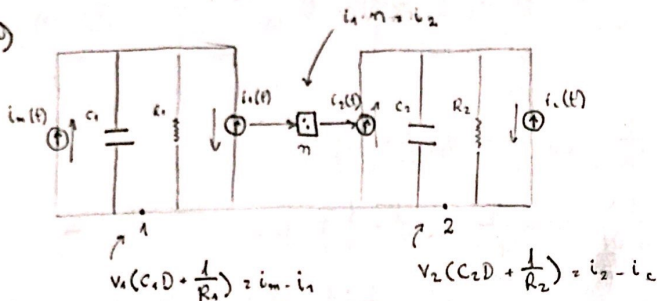 i₁ · n = i₂
iₘ(t)
C₁
R₁
i₁(t)
i₂(t)
C₂
R₂
n
1
2
v₁(C₁D + 1/R₁) = iₘ - i₁
v₂(C₂D + 1/R₂) = i₂ - i꜀